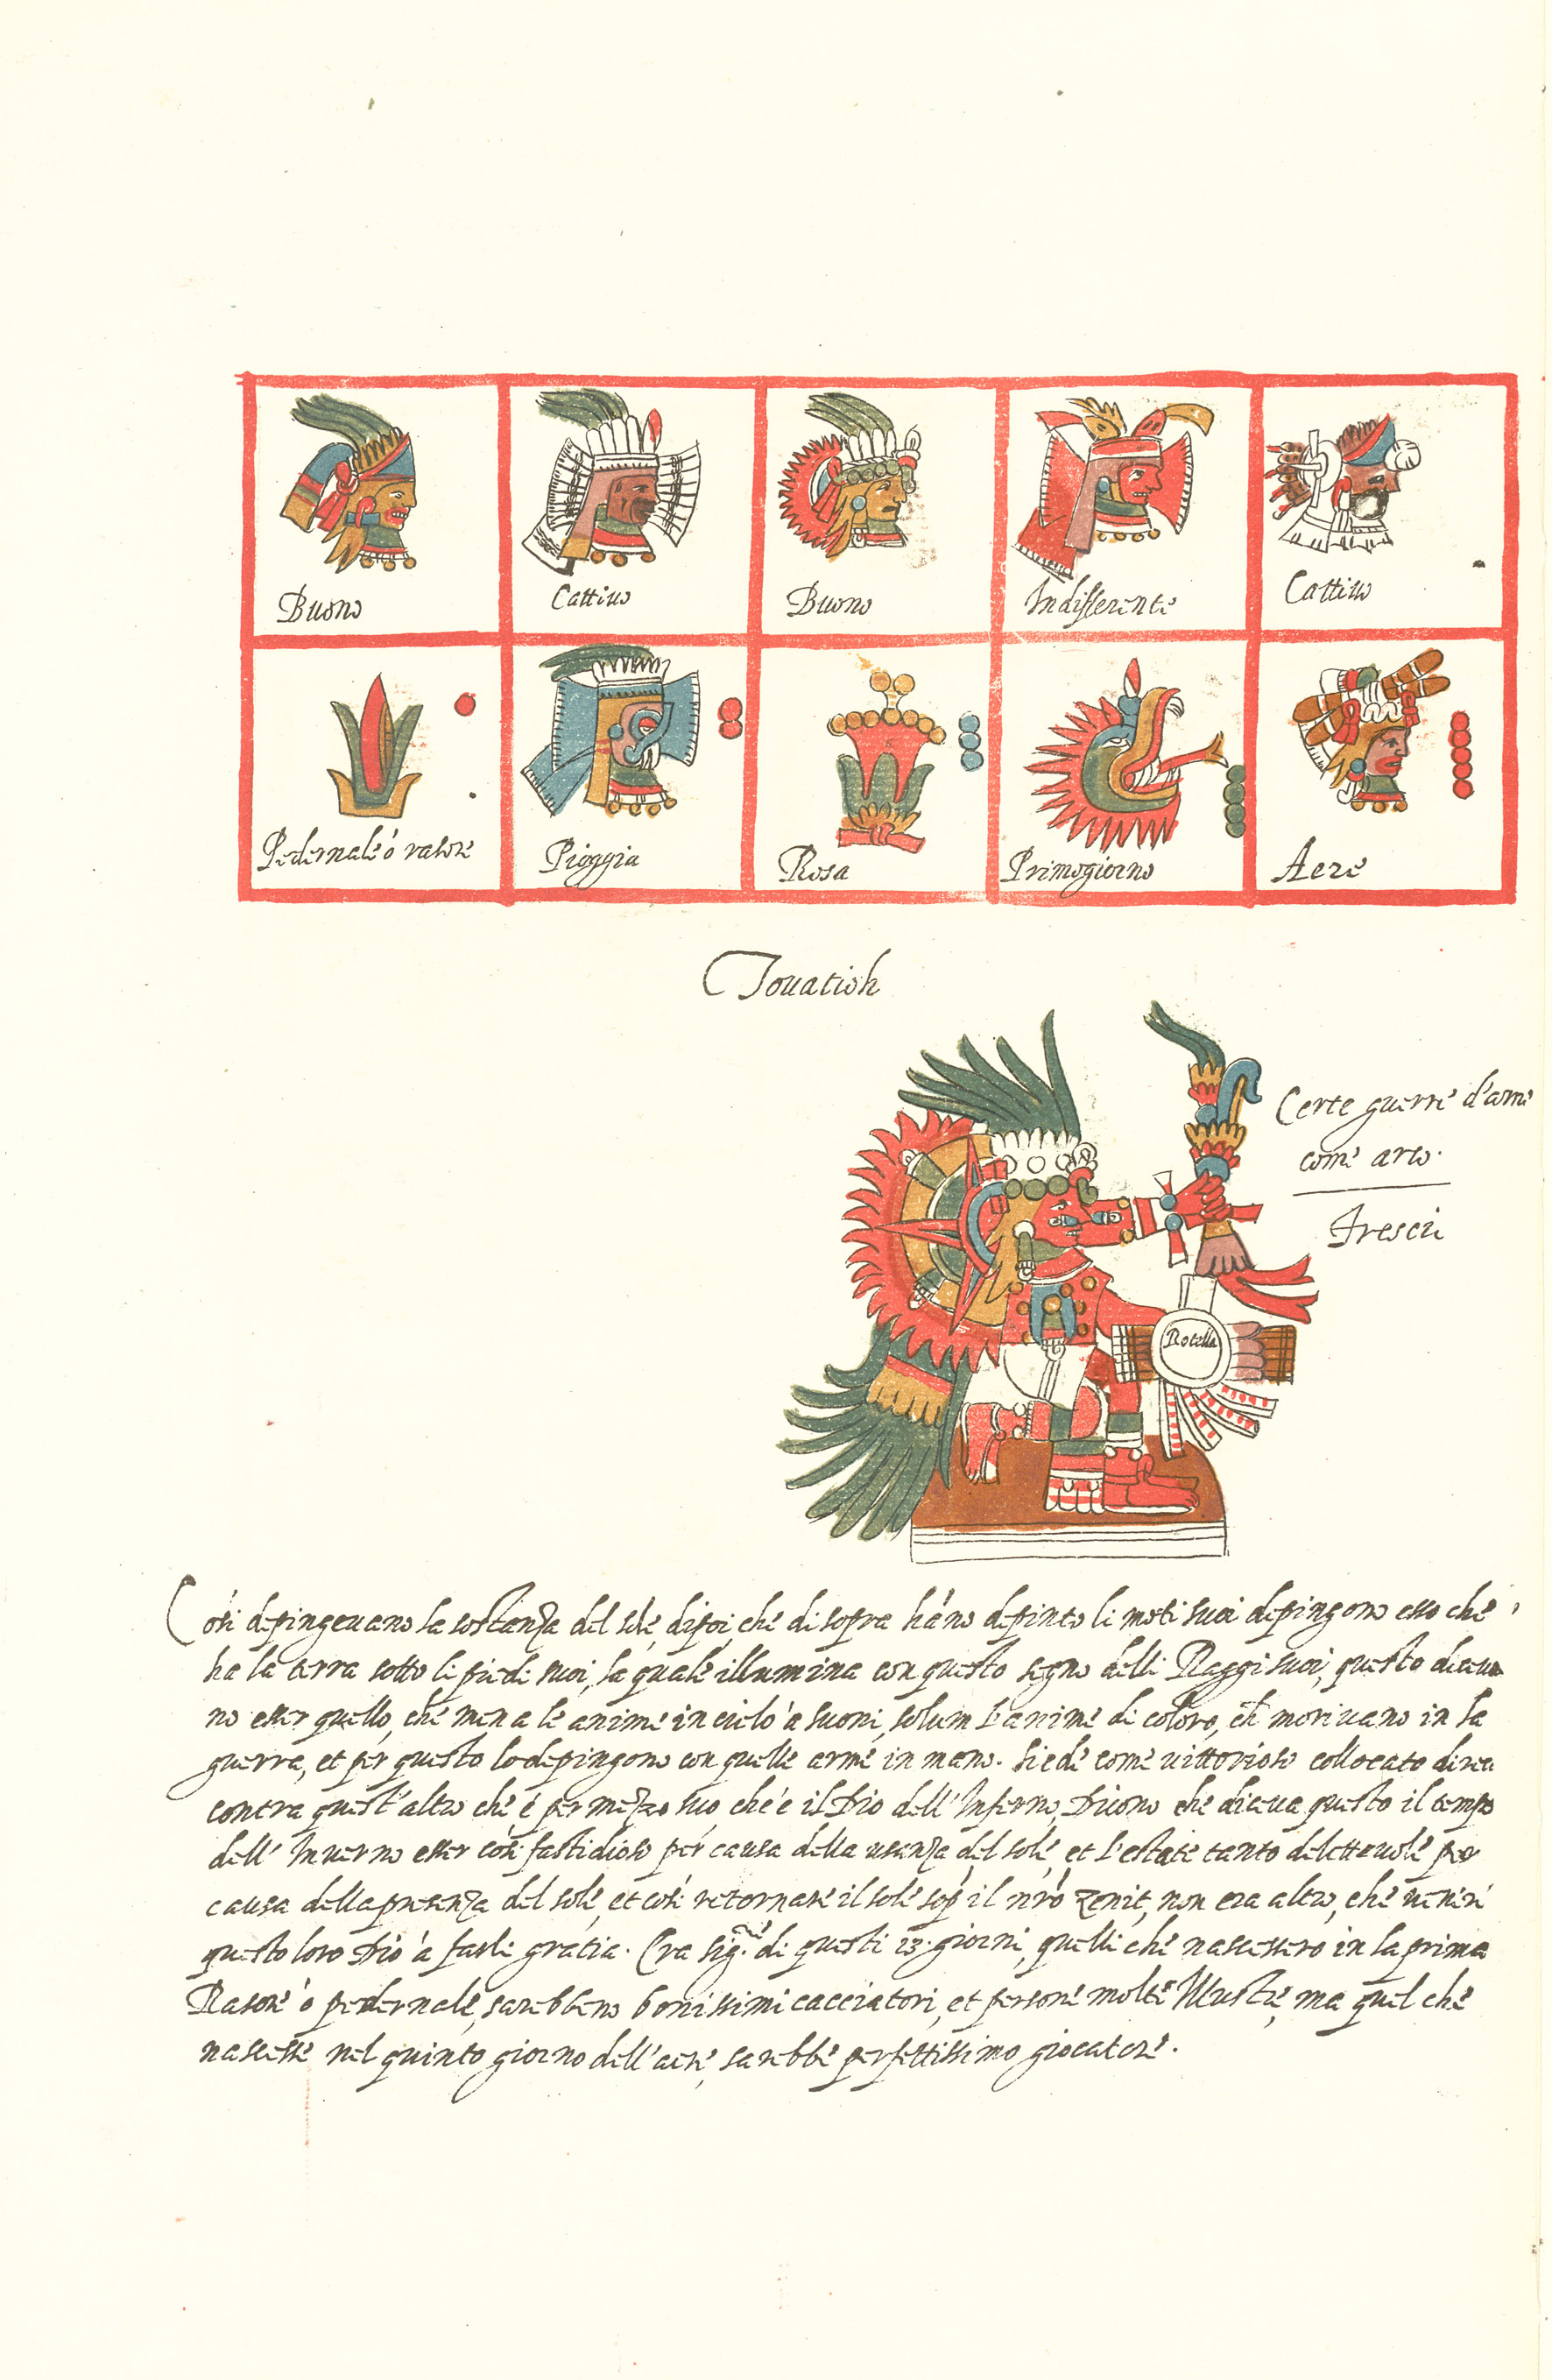 Buono
Cattiuo
Buono
Indifferente
Cattiuo
Pedernale ò rasore
Pioggia
Rosa
Primogiorno
Aere
Touatiuh
Certe guerre d'arme
come arco.
Frescii
Rotella
Cosi depingeuano la sostanza del sole, dipoi, che di sopra hàno depinto li moti suoi depingono esso che
ha la terra sotto li piedi suoi, la quale illumina con questo segno delli Raggi suoi, questo diceua
no esser quello, che mena le anime in cielo à suoni, solum l'anime di coloro, ch moriuano in la
guerra, et per questo lo depingono con quelle arme in mano. Siede come uittorioso collocato
contra quest'altro che, è per mezzo suo, che è il Dio dell'Inferno, Dicono che diceua questo il tempo
dell'Inuerno esser cosi fastidioso per causa della usenza del sole, et l'estate tanto delettouole per
causa della presenza del sole, et cosi retornare il sole sop il nrò zenit, non era altro, che uenire
questo loro Dio à farli gratia. Era sig.ne di questi 13. giorni, quelli che nascessero in la prima
Rasore ò pedernale, sarebbeno bonissimi cacciatori, et persone molte Illustre, ma quel che
nascesse nel quinto giorno dell'aere, sarebbe perfettissimo giocatore.